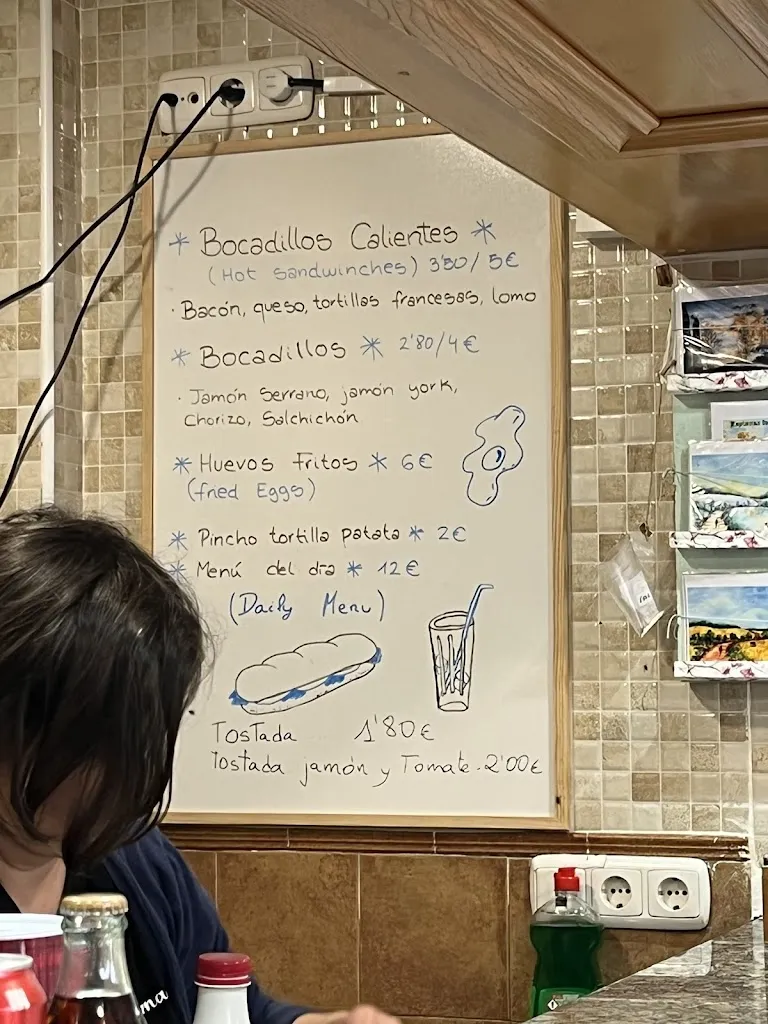 * Bocadillos Calientes *
(Hot Sandwinches) 3'50/5€
· Bacón, queso, tortillas francesas, lomo
* Bocadillos * 2'80/4€
· Jamón Serrano, jamón york,
Chorizo, Salchichón
* Huevos Fritos * 6€
(fried Eggs)
* Pincho tortilla patata * 2€
* Menú del día * 12€
(Daily Menu)
Tostada 1'80€
Tostada jamón y Tomate. 2'00€